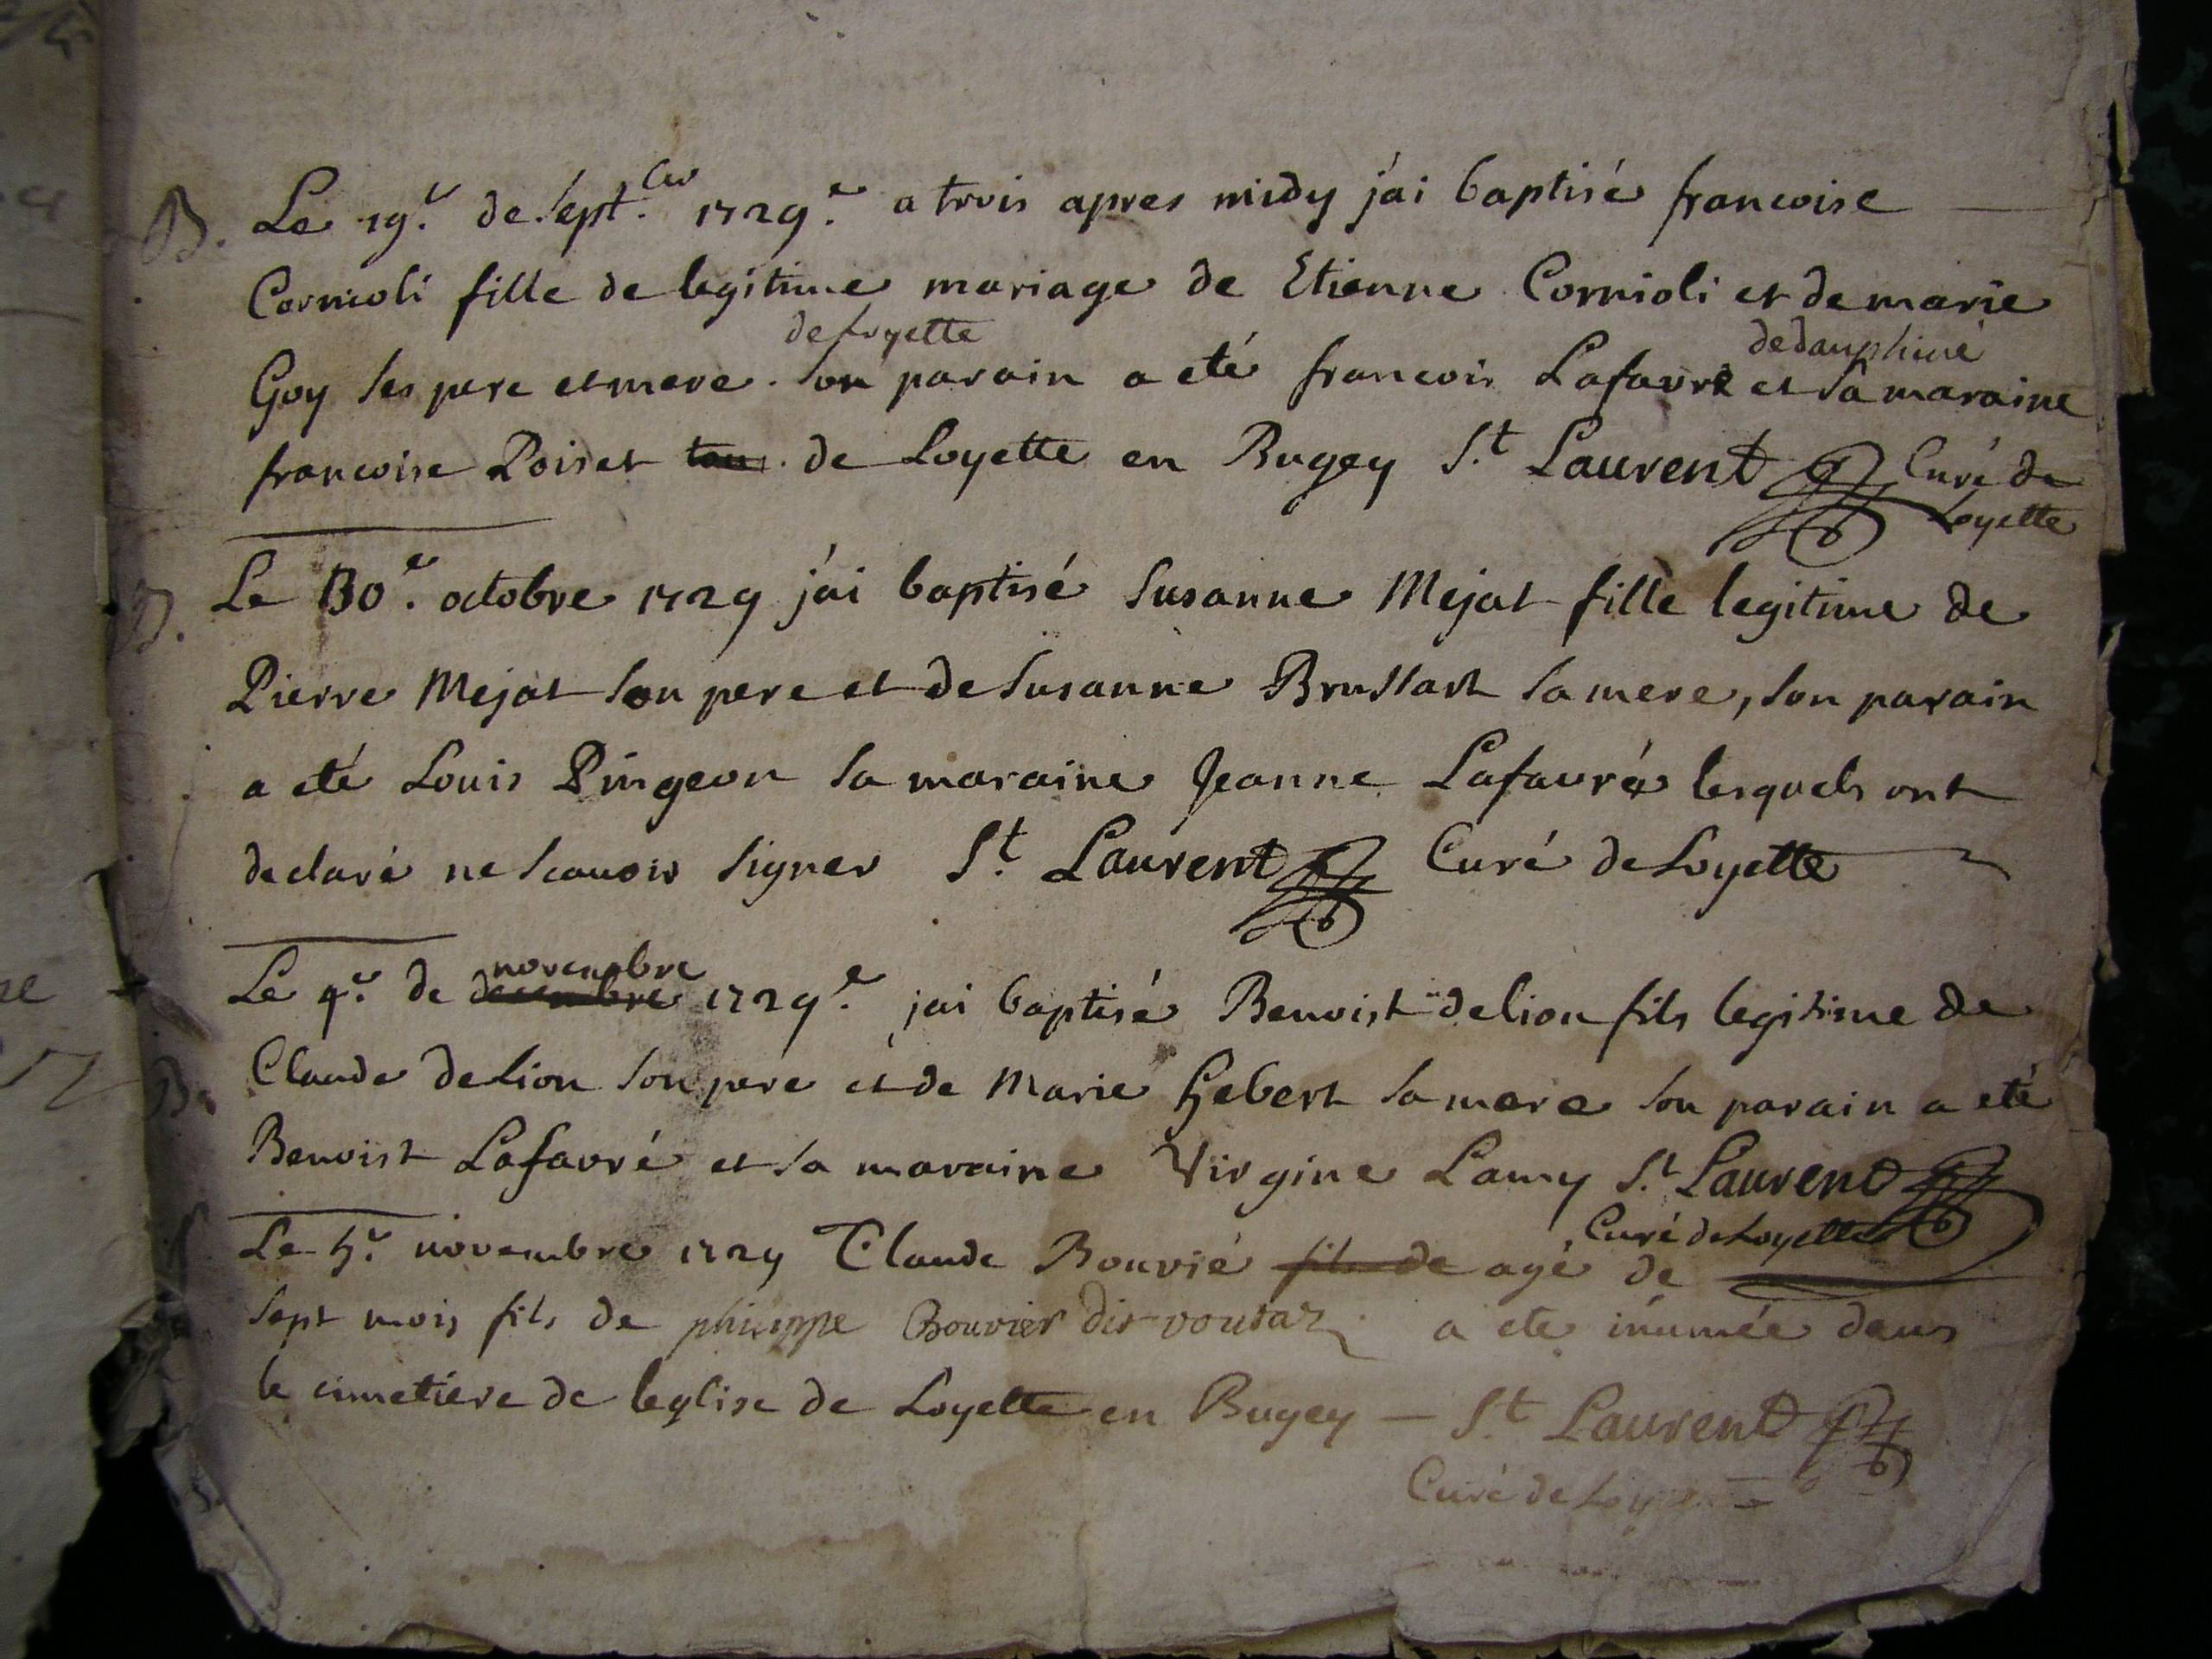 B. Le 19.e de sept.bre 1729.e a trois apres midy j'ai baptisé francoise
Cornioli fille de legitime mariage de Etienne Cornioli et de marie
de loyette
de dauphiné
Goy ses pere et mere. son parain a eté francois Lafavre et sa maraine
francoise Poiset de Loyette en Bugey S.t Laurent Curé de
Loyette
B. Le 30.e octobre 1729 j'ai baptisé Susanne Mejat fille legitime de
Pierre Mejat son pere et de Susanne Brussart sa mere, son parain
a eté Louis Pingeon sa maraine Jeanne Lafavré lesquels ont
declaré ne scavoir signer S.t Laurent Curé de Loyette
novembre
Le 4.e de decembre 1729.e j'ai baptisé Benoist delion fils legitime de
B. Claude delion son pere et de Marie hebert sa mere son parain a eté
Benoist Lafavré et sa maraine Virgine Lamy S.t Laurent
Curé de Loyette
Le 5.e novembre 1729 Claude Bouvié fils de agé de
sept mois fils de philippe Bouvier dit voutaz a ete inumée dans
le cimetiere de leglise de Loyette en Bugey — S.t Laurent
Curé de Loyette